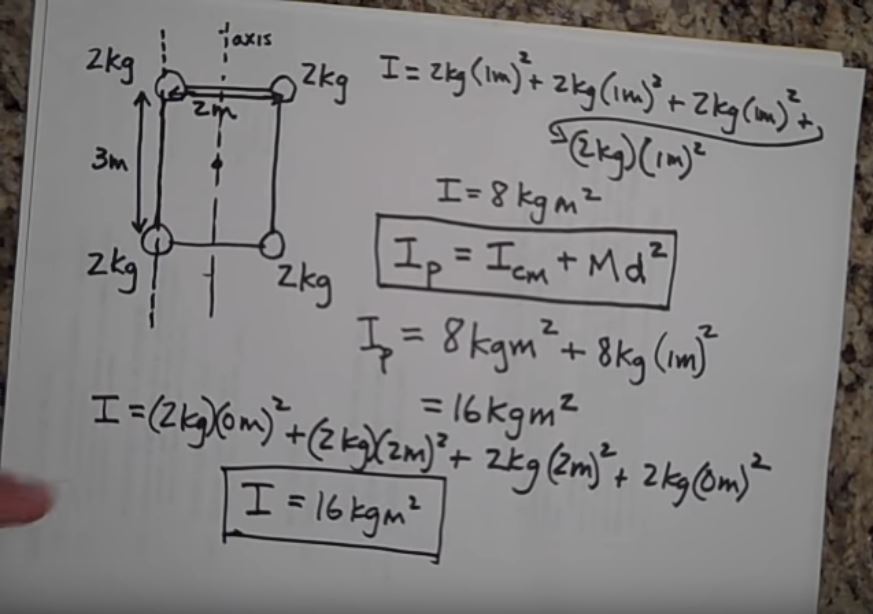 axis
2kg
2kg
2m
3m
2kg
2kg
I = 2kg(1m)² + 2kg(1m)² + 2kg(1m)² +
(2kg)(1m)²
I = 8kgm²
I_p = I_cm + Md²
I_p = 8kgm² + 8kg(1m)²
= 16kgm²
I = (2kg)(0m)² + (2kg)(2m)² + 2kg(2m)² + 2kg(0m)²
I = 16kgm²